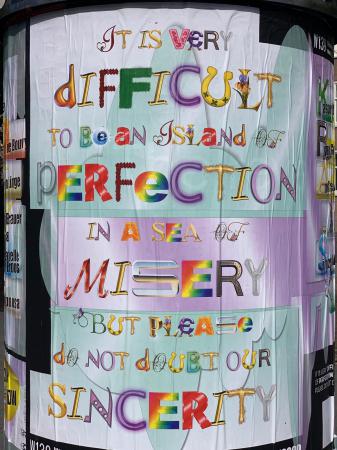 IT IS VERY
DIFFICULT
TO BE AN ISLAND OF
PERFECTION
IN A SEA OF
MISERY
BUT PLEASE
DO NOT DOUBT OUR
SINCERITY
W139
W139